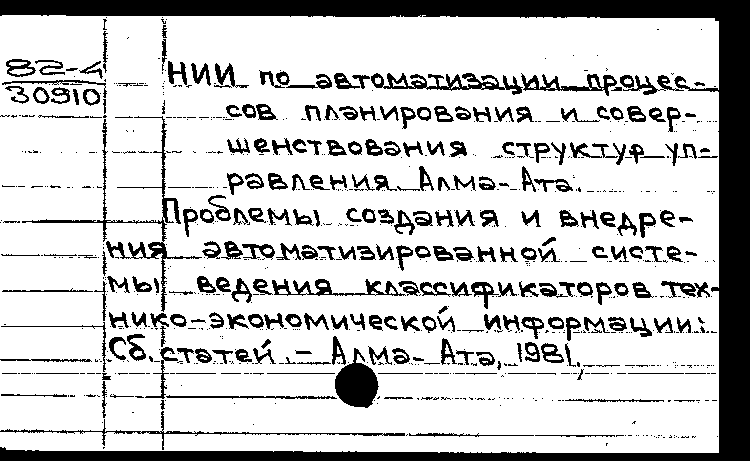 82-4
30910
НИИ по автоматизации процес-
сов планирования и совер-
шенствования структур уп-
равления. Алма-Ата.
Проблемы создания и внедре-
ния автоматизированной систе-
мы ведения классификаторов тех-
нико-экономической информации:
Сб. статей. - Алма-Ата, 1981.